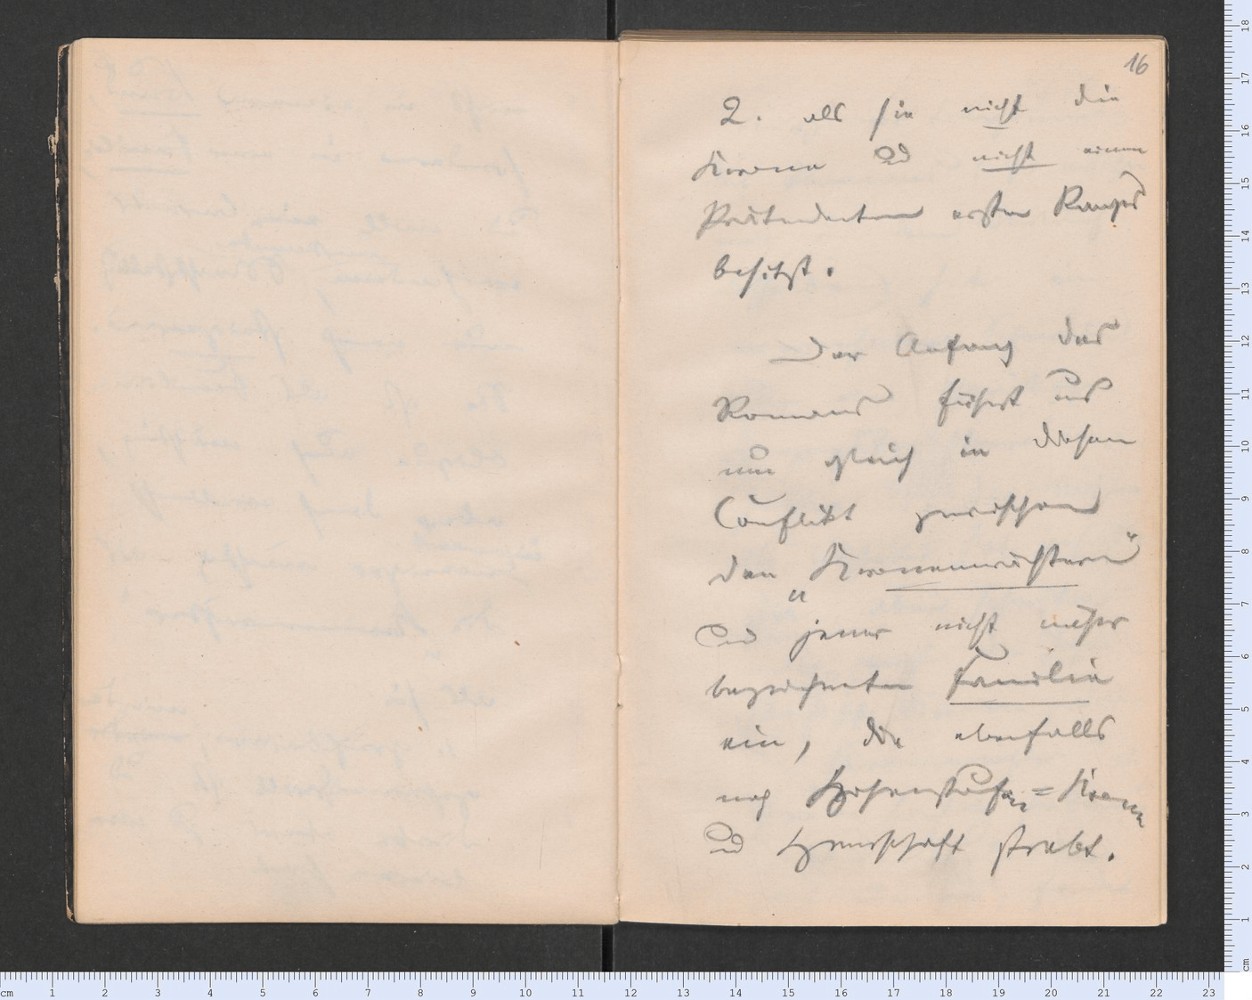 16
2. als sie nicht die
Krone und nicht einen
Prätendenten ersten Ranges
besitzt.
Der Anfang des
Romans führt uns
nun gleich in diesen
Conflikt zwischen
den „Kronenwächtern“
und jener nicht näher
bezeichneten Familie
ein, die ebenfalls
nach Hohenstaufen=Krone
und Herrschaft strebt.